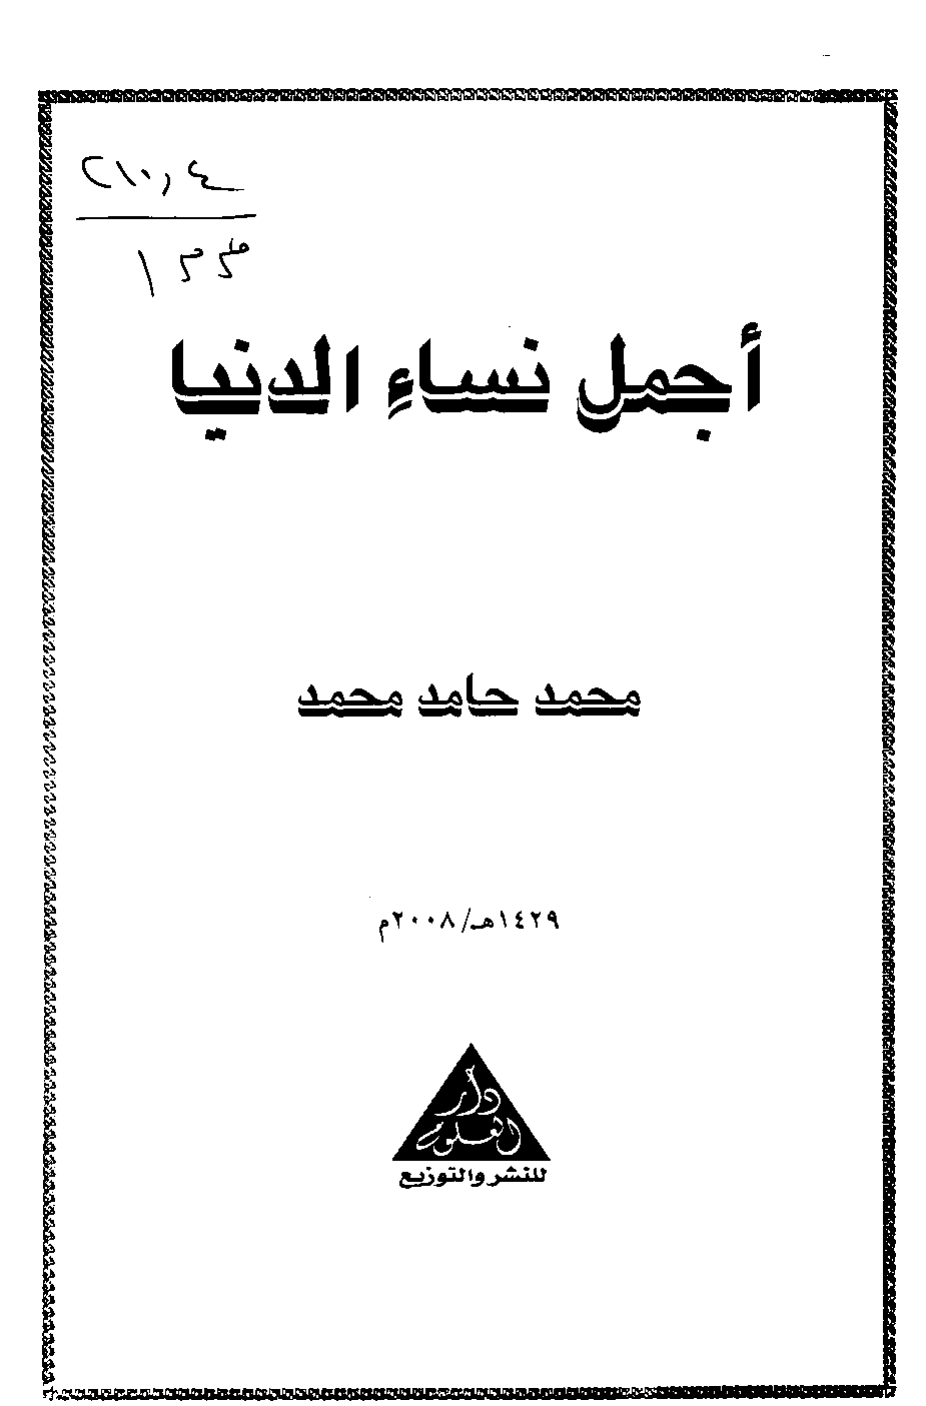 ٢١٠,٤
أجمل نساءِ الدنيا
محمد حامد محمد
١٤٢٩هـ/٢٠٠٨م
دار
العلوم
للنشر والتوزيع